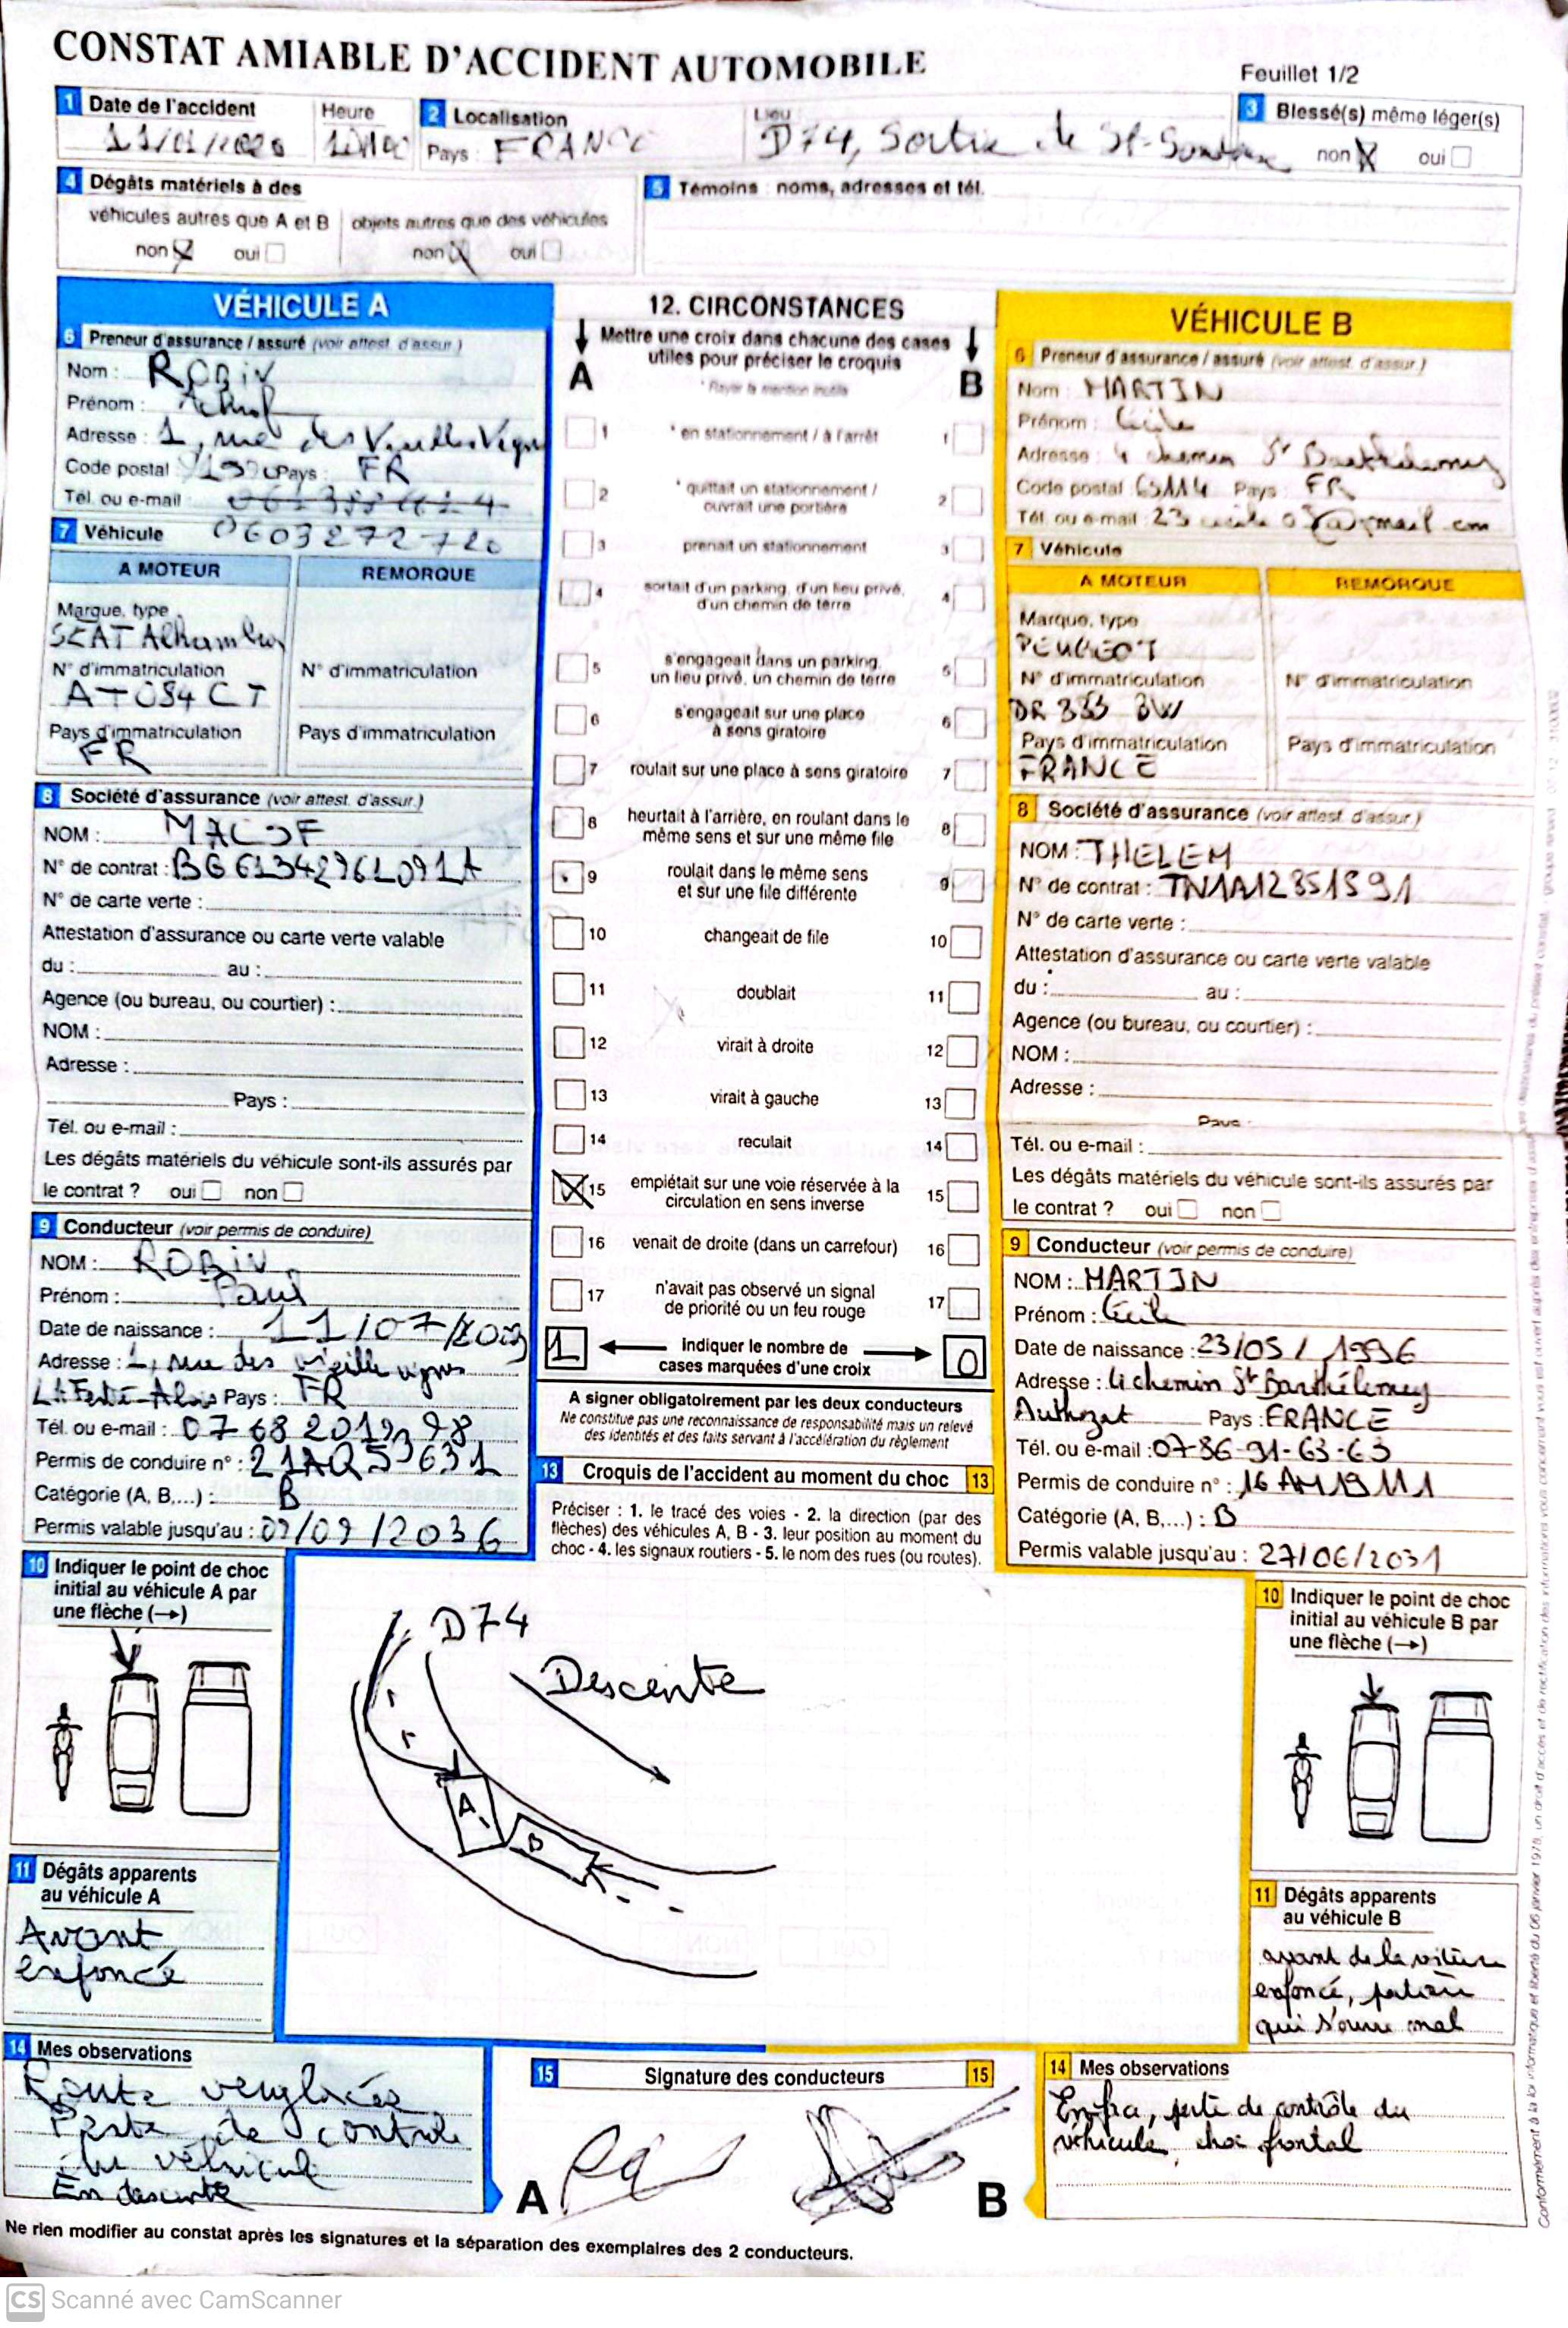 CONSTAT AMIABLE D'ACCIDENT AUTOMOBILE
Feuillet 1/2
1 Date de l'accident
Heure
2 Localisation
Pays : FRANCE
Lieu
D74, Sortie de St-
3 Blessé(s) même léger(s)
non oui
4 Dégâts matériels à des
véhicules autres que A et B
non oui
objets autres que des véhicules
non oui
5 Témoins : noms, adresses et tél.
VÉHICULE A
6 Preneur d'assurance / assuré (voir attest. d'assur.)
Nom : ROBIN
Prénom :
Adresse : 1, rue des
Code postal Pays : FR
Tél. ou e-mail
0603272720
7 Véhicule
A MOTEUR
REMORQUE
Marque, type
SEAT Alhambra
N° d'immatriculation
AT 034 CT
Pays d'immatriculation
FR
N° d'immatriculation
Pays d'immatriculation
8 Société d'assurance (voir attest. d'assur.)
NOM : MACSF
N° de contrat :
N° de carte verte :
Attestation d'assurance ou carte verte valable
du : au :
Agence (ou bureau, ou courtier) :
NOM :
Adresse :
Pays :
Tél. ou e-mail :
Les dégâts matériels du véhicule sont-ils assurés par
le contrat ? oui non
9 Conducteur (voir permis de conduire)
NOM : ROBIN
Prénom : Paul
Date de naissance : 11/07/
Adresse : 1, rue des vieille vignes
La Ferté-Alais Pays : FR
Tél. ou e-mail :
Permis de conduire n° : 21AQ53631
Catégorie (A, B,...) : B
Permis valable jusqu'au : 09/09/2036
10 Indiquer le point de choc
initial au véhicule A par
une flèche (→)
11 Dégâts apparents
au véhicule A
Avant
enfoncé
14 Mes observations
Route verglacée
Perte de controle
du véhicule
En descente
12. CIRCONSTANCES
Mettre une croix dans chacune des cases
utiles pour préciser le croquis
A B
* Rayer la mention inutile
1 * en stationnement / à l'arrêt 1
2 * quittait un stationnement / 2
ouvrait une portière
3 prenait un stationnement 3
4 sortait d'un parking, d'un lieu privé, 4
d'un chemin de terre
5 s'engageait dans un parking, 5
un lieu privé, un chemin de terre
6 s'engageait sur une place 6
à sens giratoire
7 roulait sur une place à sens giratoire 7
8 heurtait à l'arrière, en roulant dans le 8
même sens et sur une même file
9 roulait dans le même sens 9
et sur une file différente
10 changeait de file 10
11 doublait 11
12 virait à droite 12
13 virait à gauche 13
14 reculait 14
15 empiétait sur une voie réservée à la 15
circulation en sens inverse
16 venait de droite (dans un carrefour) 16
17 n'avait pas observé un signal 17
de priorité ou un feu rouge
1 Indiquer le nombre de 0
cases marquées d'une croix
A signer obligatoirement par les deux conducteurs
Ne constitue pas une reconnaissance de responsabilité mais un relevé
des identités et des faits servant à l'accélération du règlement
13 Croquis de l'accident au moment du choc 13
Préciser : 1. le tracé des voies - 2. la direction (par des
flèches) des véhicules A, B - 3. leur position au moment du
choc - 4. les signaux routiers - 5. le nom des rues (ou routes).
D74
Descente
A
B
15 Signature des conducteurs 15
A B
VÉHICULE B
6 Preneur d'assurance / assuré (voir attest. d'assur.)
Nom : MARTIN
Prénom : Cécile
Adresse : 4 chemin St Barthélemy
Code postal 63114 Pays : FR
Tél. ou e-mail :
7 Véhicule
A MOTEUR
REMORQUE
Marque, type
PEUGEOT
N° d'immatriculation
DR 333 BW
Pays d'immatriculation
FRANCE
N° d'immatriculation
Pays d'immatriculation
8 Société d'assurance (voir attest. d'assur.)
NOM : THELEM
N° de contrat : TN1A12851891
N° de carte verte :
Attestation d'assurance ou carte verte valable
du : au :
Agence (ou bureau, ou courtier) :
NOM :
Adresse :
Pays :
Tél. ou e-mail :
Les dégâts matériels du véhicule sont-ils assurés par
le contrat ? oui non
9 Conducteur (voir permis de conduire)
NOM : MARTIN
Prénom : Cécile
Date de naissance : 23/05/1996
Adresse : 4 chemin St Barthélemy
Authezat Pays : FRANCE
Tél. ou e-mail : 07-86-91-63-63
Permis de conduire n° : 16AM19111
Catégorie (A, B,...) : B
Permis valable jusqu'au : 27/06/2031
10 Indiquer le point de choc
initial au véhicule B par
une flèche (→)
11 Dégâts apparents
au véhicule B
avant de la voiture
enfoncé, portière
qui s'ouvre mal
14 Mes observations
perte de contrôle du
véhicule, choc frontal
Ne rien modifier au constat après les signatures et la séparation des exemplaires des 2 conducteurs.
CS Scanné avec CamScanner